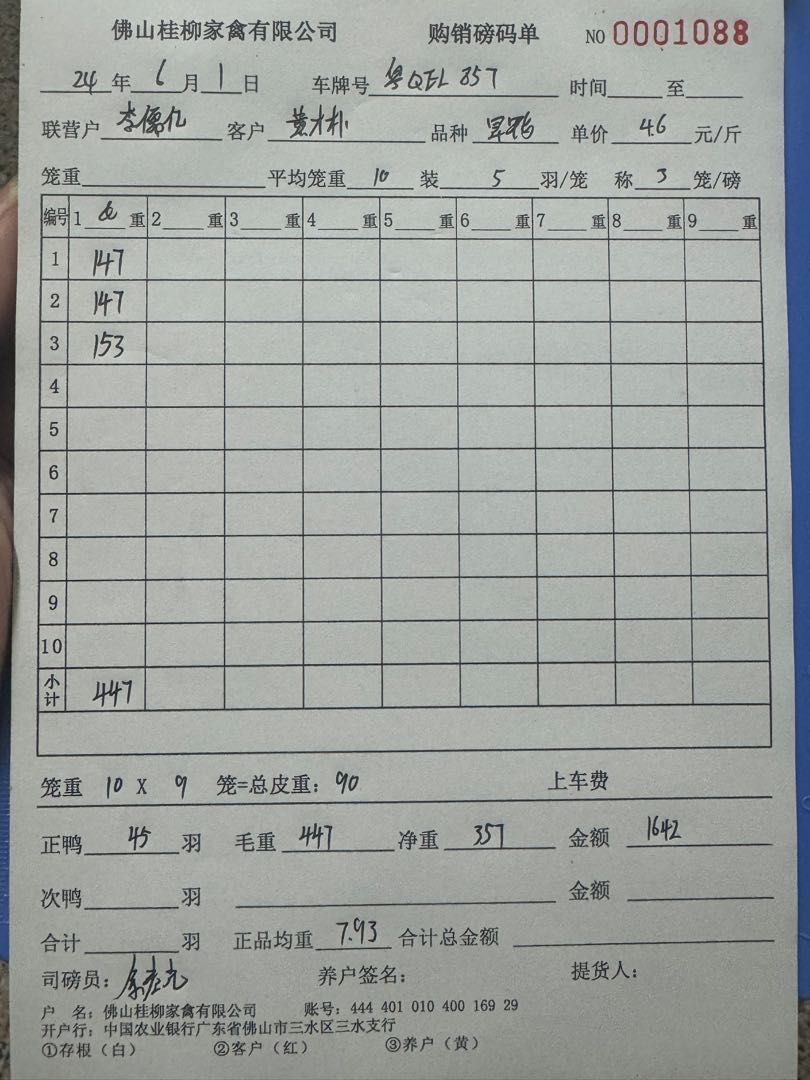 佛山桂柳家禽有限公司 购销磅码单 NO 0001088
24 年 6 月 1 日 车牌号 粤QEL 857 时间 至
联营户 李 亿 客户 黄才朴 品种 单价 4.6 元/斤
笼重 平均笼重 10 装 5 羽/笼 称 3 笼/磅
编号 1 重 2 重 3 重 4 重 5 重 6 重 7 重 8 重 9 重
1 147
2 147
3 153
4
5
6
7
8
9
10
小计 447
笼重 10 X 9 笼=总皮重: 90 上车费
正鸭 45 羽 毛重 447 净重 357 金额 1642
次鸭 羽 金额
合计 羽 正品均重 7.93 合计总金额
司磅员: 养户签名: 提货人:
户 名: 佛山桂柳家禽有限公司 账号: 444 401 010 400 169 29
开户行: 中国农业银行广东省佛山市三水区三水支行
①存根(白) ②客户(红) ③养户(黄)